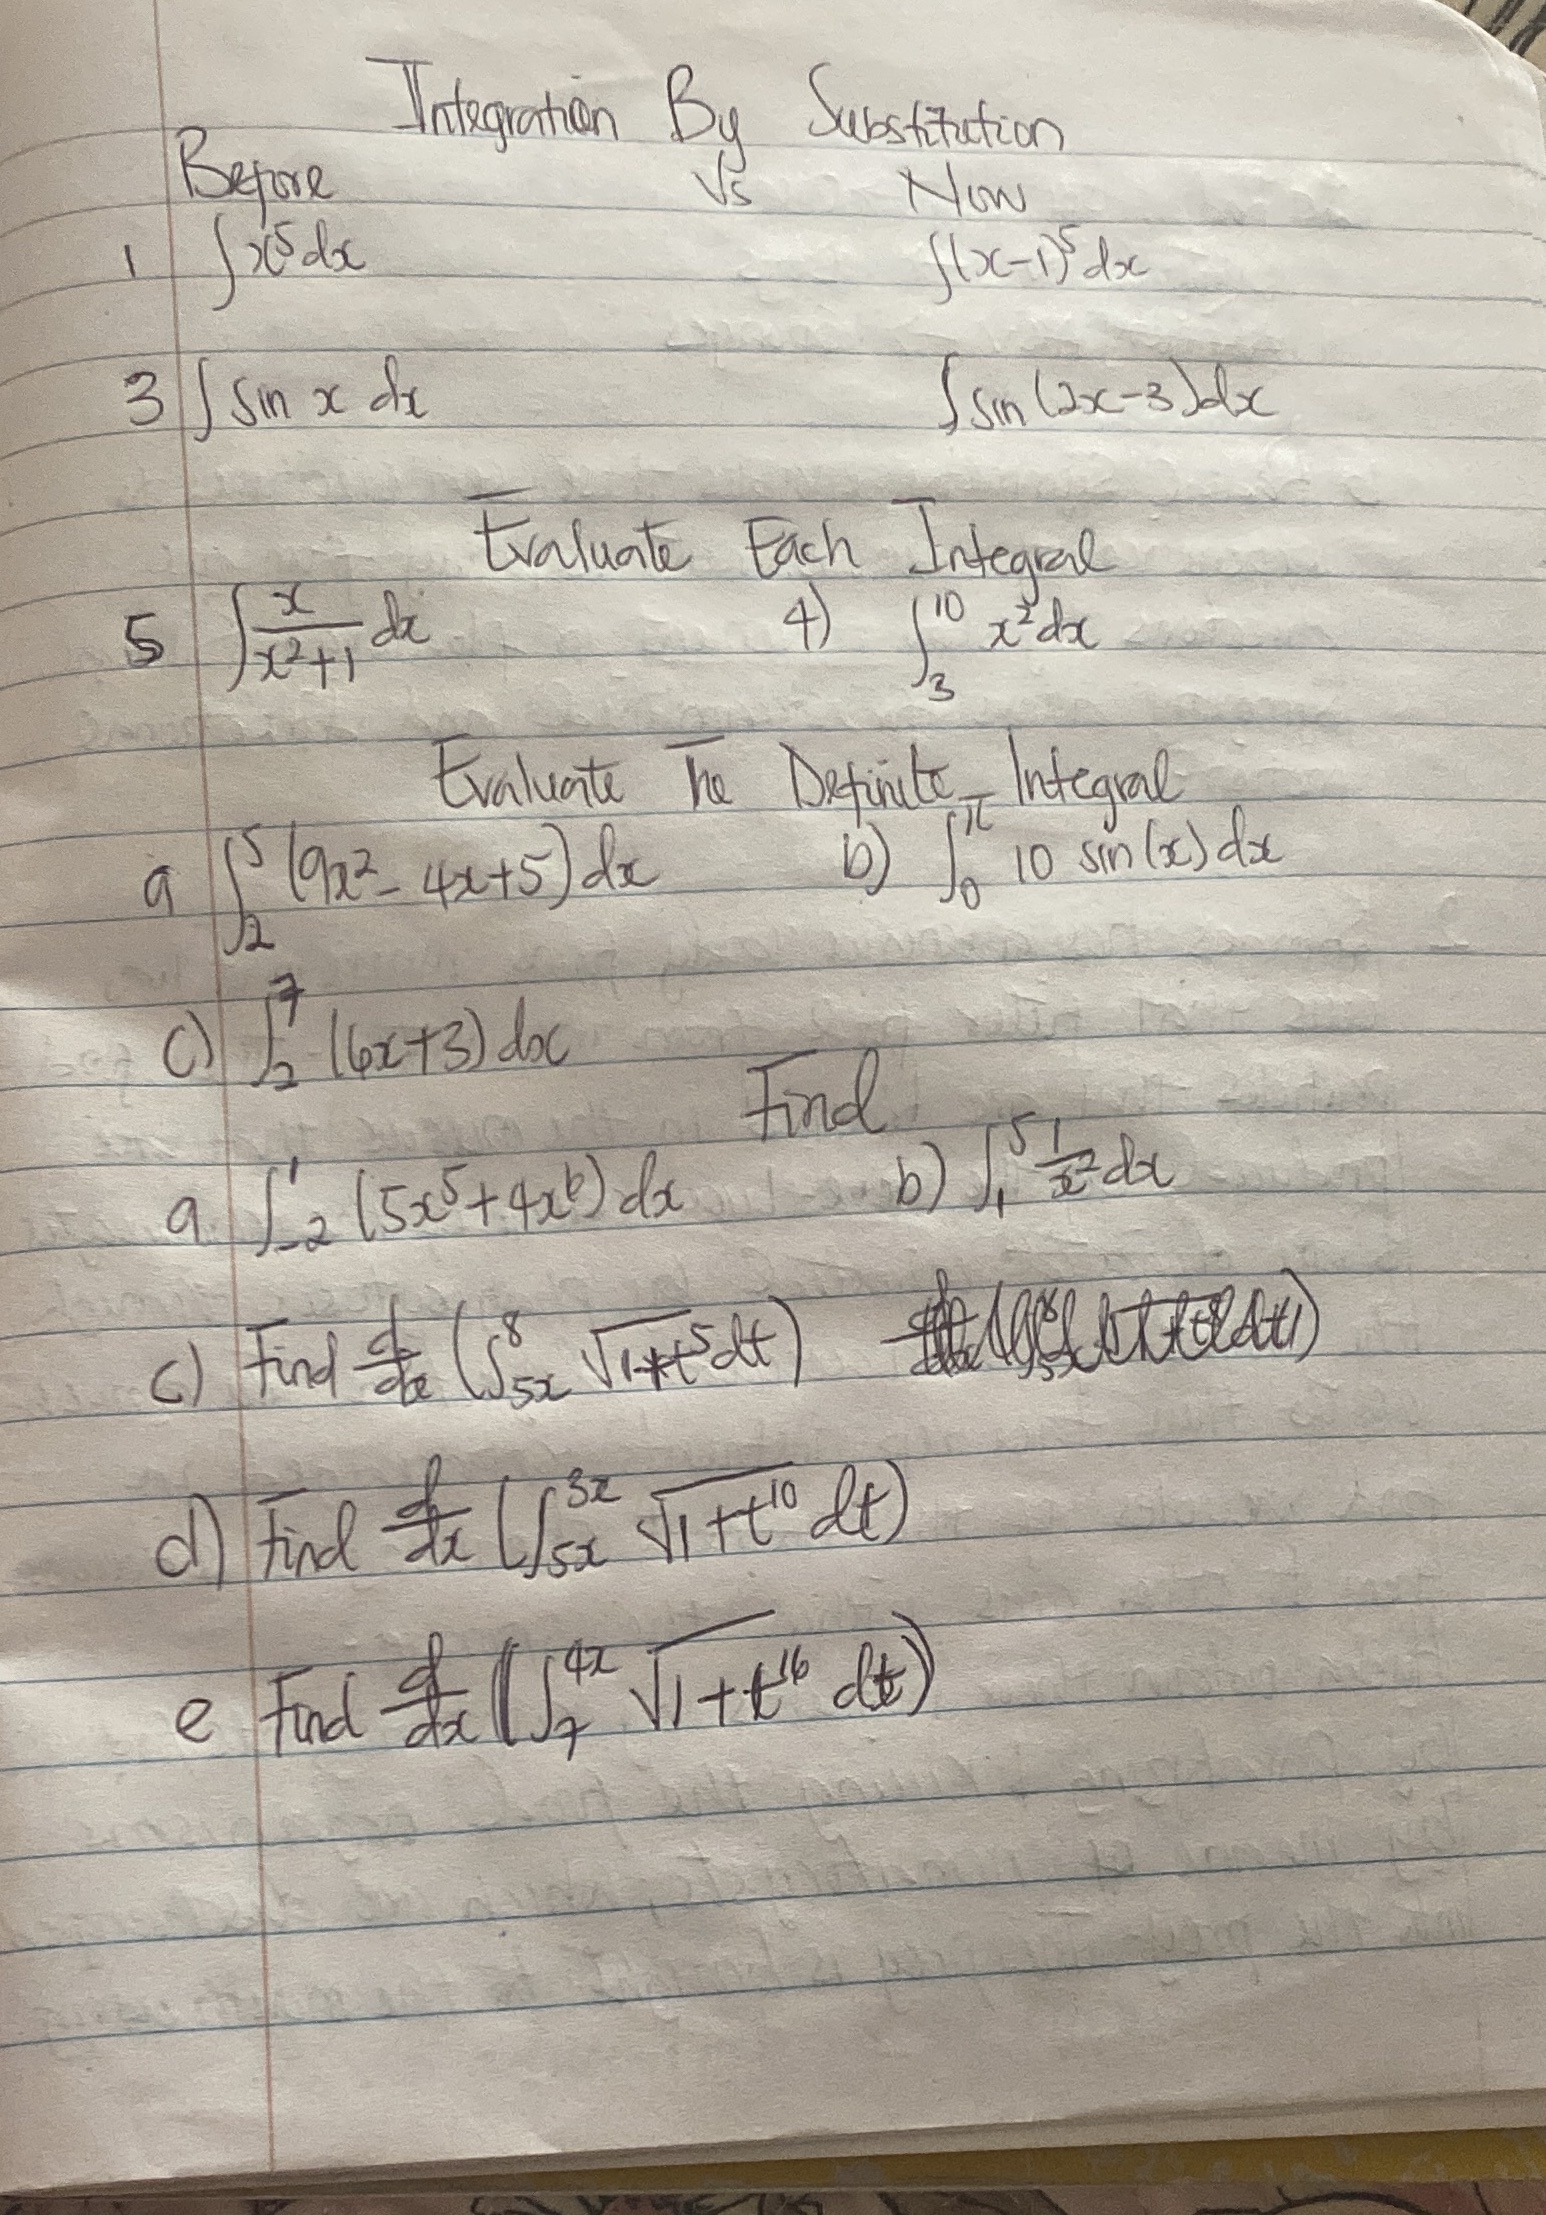 Integration By Substitution
Before Vs Now
1 ∫x⁵dx ∫(x-1)⁵dx
3 ∫sin x dx ∫sin(2x-3)dx
Evaluate Each Integral
5 ∫ x/(x²+1) dx 4) ∫₃¹⁰ x²dx
Evaluate The Definite Integral
a ∫₂⁵ (9x²-4x+5)dx b) ∫₀^π 10 sin(x)dx
c) ∫₂⁷ (6x+3)dx
Find
a ∫₋₂¹ (5x⁵+4x⁶)dx b) ∫₁⁵ 1/x² dx
c) Find d/dx (∫₅ₓ⁸ √(1+t⁵) dt)
d) Find d/dx (∫₅ₓ³ˣ √(1+t¹⁰) dt)
e Find d/dx (∫₇⁴ˣ √(1+t¹⁶) dt)